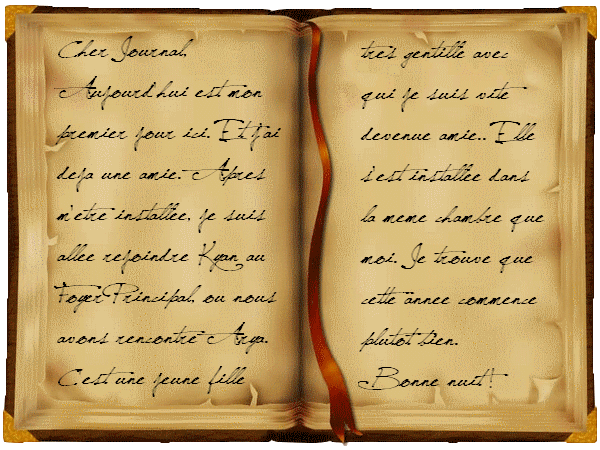 Cher Journal,
Aujourd'hui est mon
premier jour ici. Et j'ai
deja une amie. Apres
m'etre installee, je suis
allee rejoindre Kyan au
Foyer Principal, ou nous
avons rencontre Arya.
C'est une jeune fille
tres gentille avec
qui je suis vite
devenue amie.. Elle
s'est installee dans
la meme chambre que
moi. Je trouve que
cette annee commence
plutot bien.
Bonne nuit!